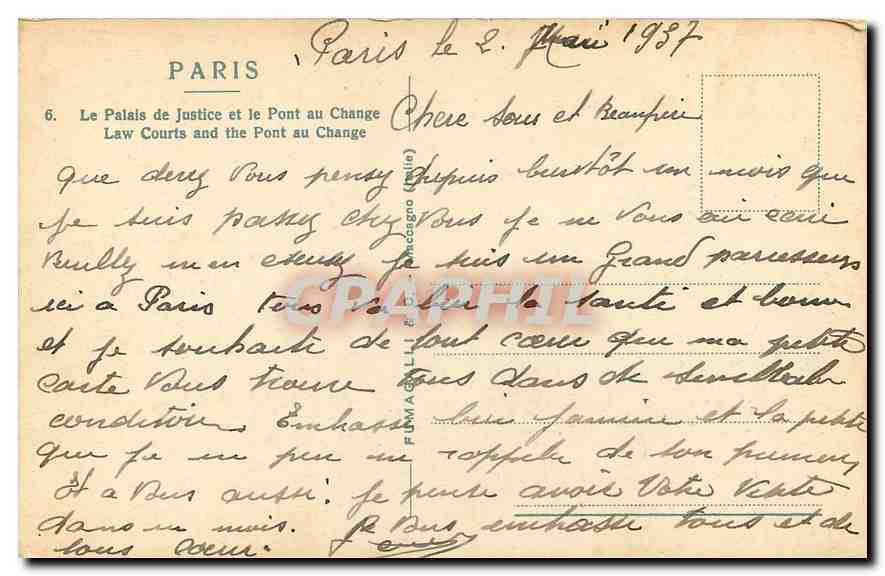 Paris le 2. Mai 1937
PARIS
6. Le Palais de Justice et le Pont au Change
Law Courts and the Pont au Change
Chere Sœur et Beaufrère
que devez Vous pensez depuis bientôt un mois que
je suis passez chez Vous je ne Vous ai écri
Veuillez m'en excusez je suis un Grand paresseux
ici a Paris tous va bien la santé et bonne
et je souhaite de tout cœur que ma petite
carte Vous trouve tous dans de semblable
condition. Embrasse bien Janine et la petite
que je un peu me rappele de son
Et a Vous aussi! je pense avoir Votre Visite
dans un mois. je Vous embrasse tous et de
tous cœur.
FUMAGALLI & C. Maccagno (Italie)
CPAPHIL